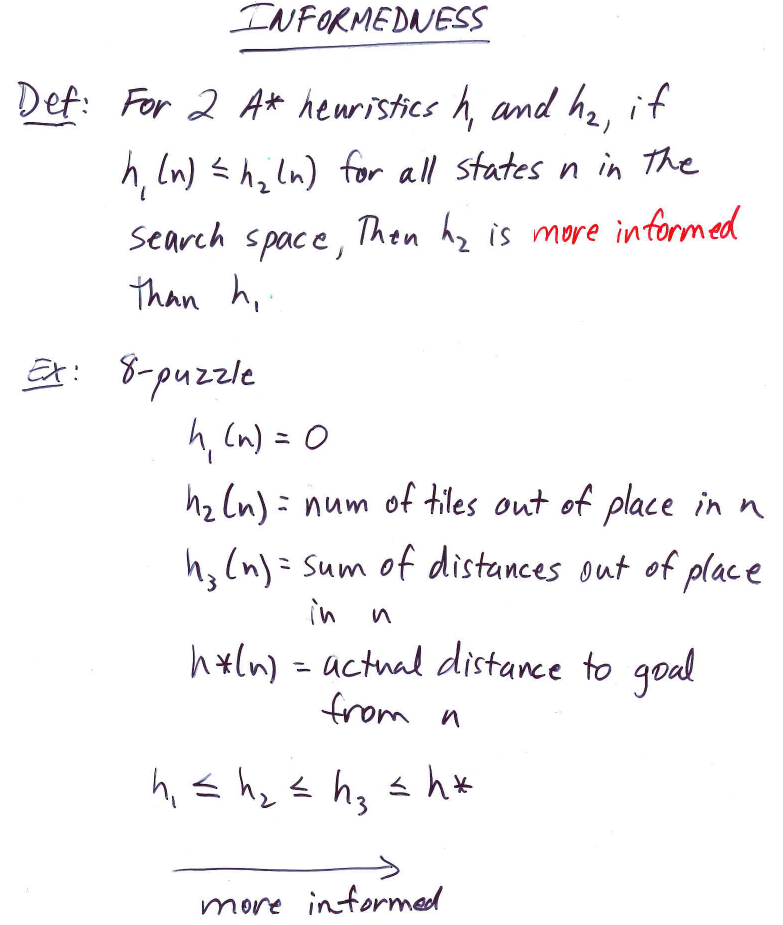 INFORMEDNESS
Def: For 2 A* heuristics h₁ and h₂, if
h₁(n) ≤ h₂(n) for all states n in the
search space, Then h₂ is more informed
than h₁.
Ex: 8-puzzle
h₁(n) = 0
h₂(n) = num of tiles out of place in n
h₃(n) = sum of distances out of place
in n
h*(n) = actual distance to goal
from n
h₁ ≤ h₂ ≤ h₃ ≤ h*
more informed